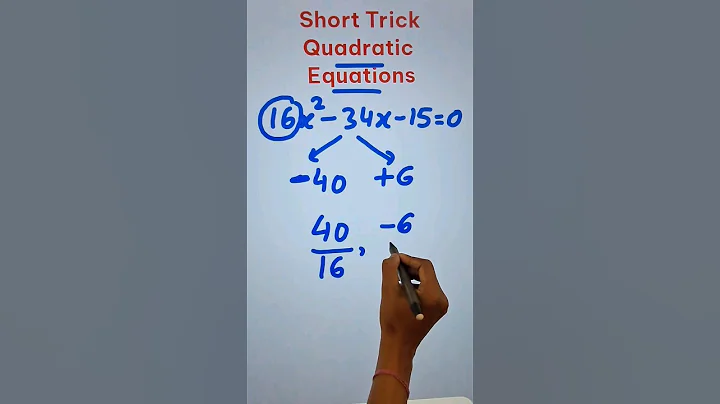 Short Trick
Quadratic
Equations
16x² - 34x - 15 = 0
-40 +6
40/16, -6